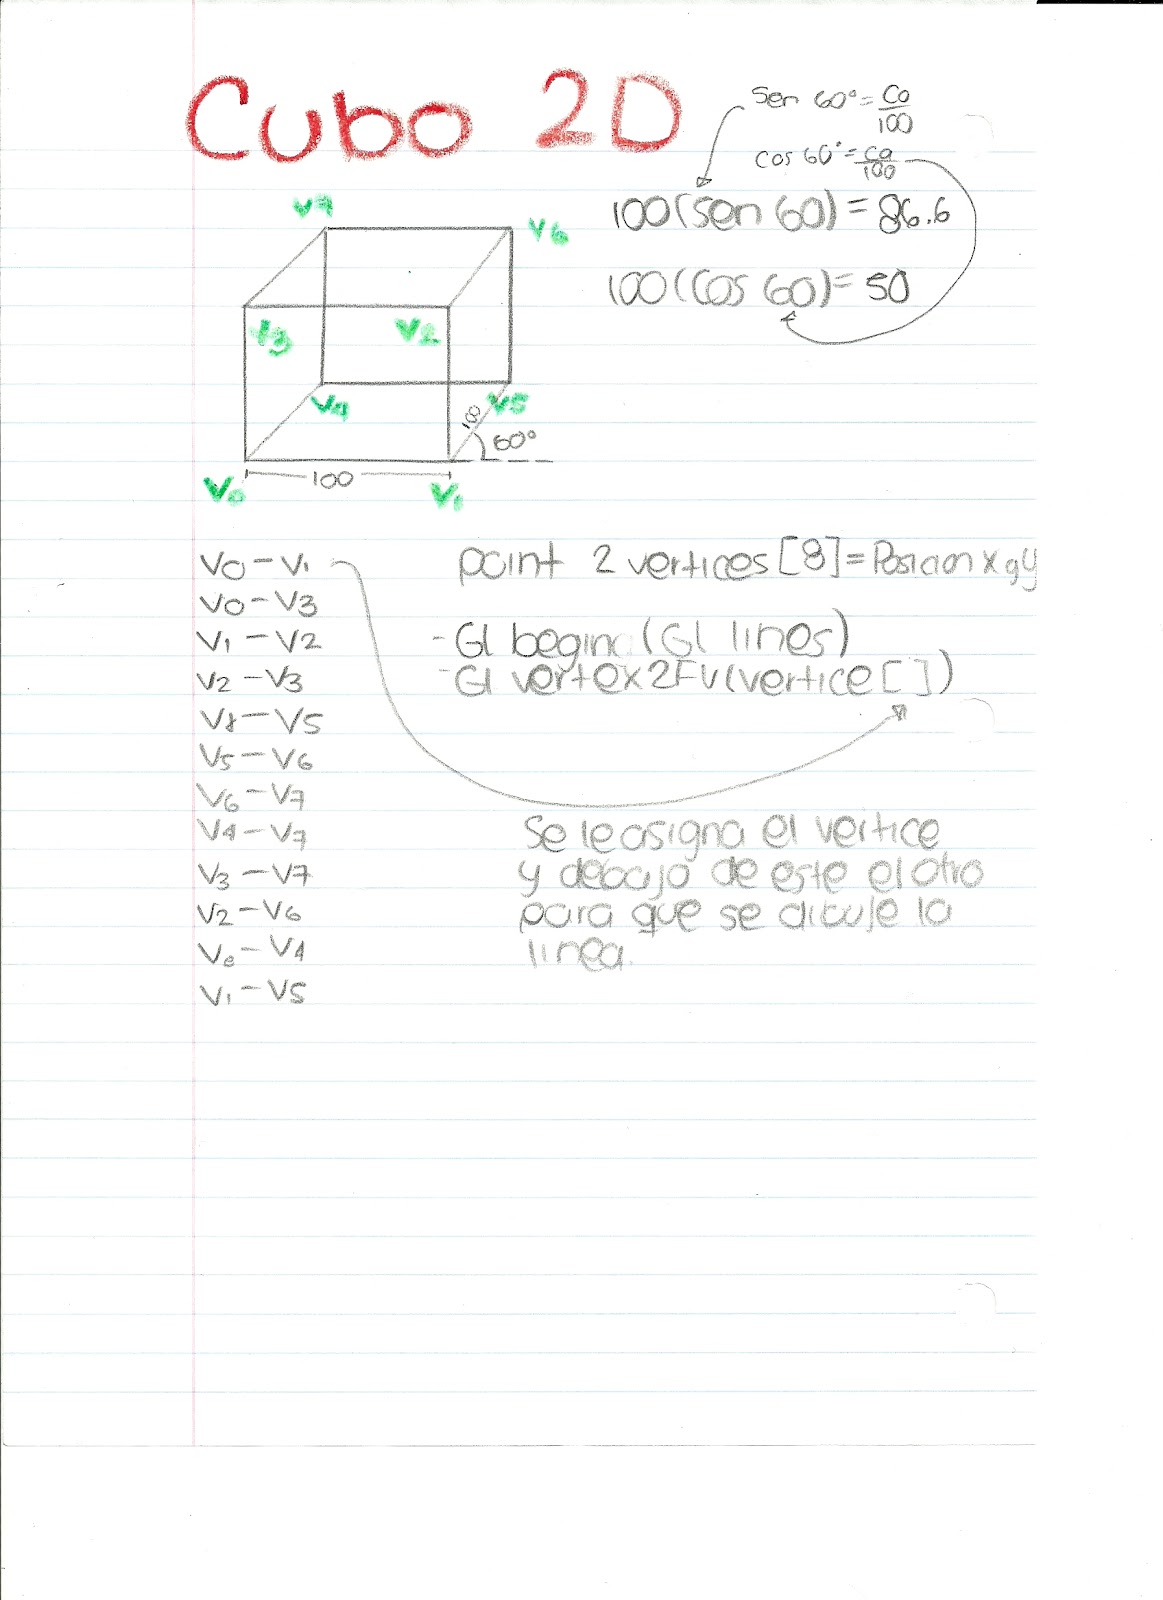 Cubo 2D
Sen 60° = Co/100
cos 60° = ca/100
100(sen 60) = 86.6
100(Cos 60) = 50
V7
V6
V3
V2
V4
V5
100
60°
100
V0
V1
V0 - V1
V0 - V3
V1 - V2
V2 - V3
V4 - V5
V5 - V6
V6 - V7
V4 - V7
V3 - V7
V2 - V6
V0 - V4
V1 - V5
point 2 vertices [8] = Posicion x y y
- Gl begin (Gl lines)
- Gl vertex 2Fv (vertice [ ])
Se le asigna el vertice
y debajo de este el otro
para que se dibuje la
linea.